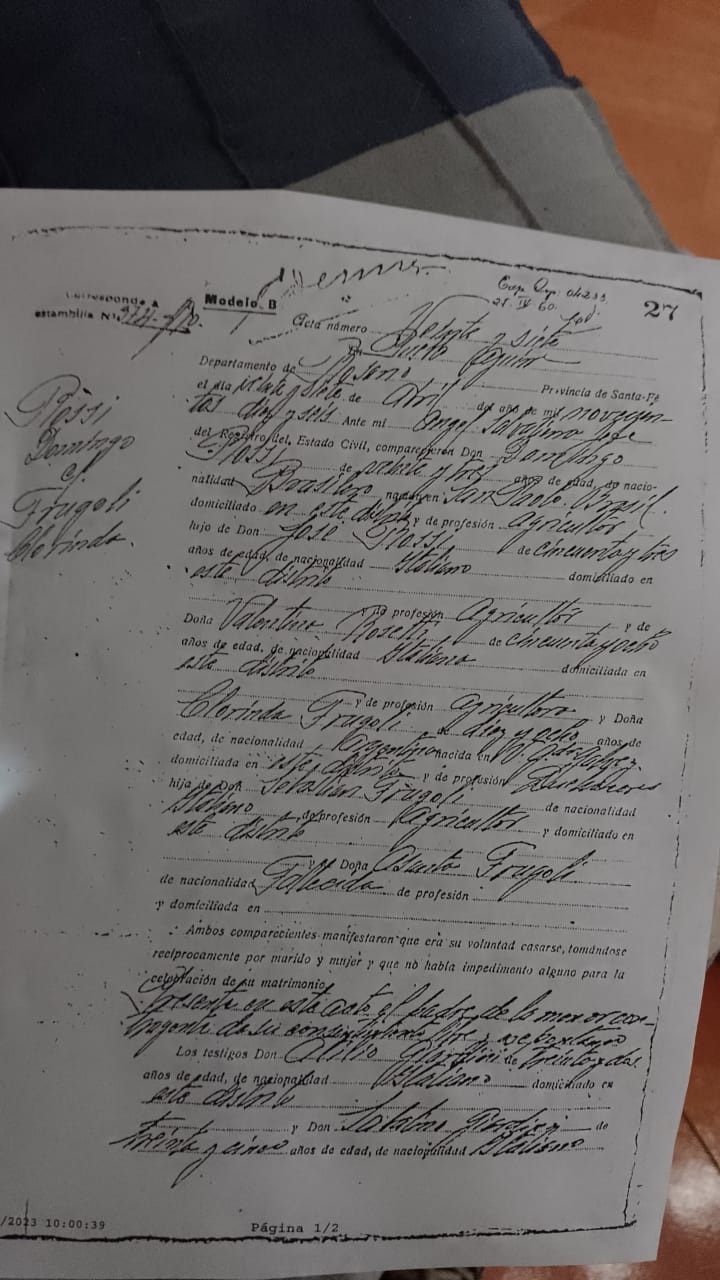 Corresponde a
estampilla Nº
Modelo B
Exp. 04233
21 IV 60.
27
Acta número Veinte y siete
En Pueblo
Departamento de Rosario Provincia de Santa-Fé
el día de Abril del año de mil novecien-
tos diez y seis Ante mi Angel Jefe
del Registro del Estado Civil, comparecieron Don Domingo
Rossi de veinte y tres años de edad, de nacio-
nalidad Brasilero nacido en San Paolo Brasil.
domiciliado en este distrito y de profesión agricultor
hijo de Don José Rossi de cincuenta y tres
años de edad, de nacionalidad Italiano domiciliado en
este distrito
y de profesión Agricultor y de
Doña Valentina Roselli de cincuenta y ocho
años de edad, de nacionalidad Italiana domiciliada en
este distrito
y de profesión agricultora y Doña
Clorinda Frugoli de diez y ocho años de
edad, de nacionalidad Argentina nacida en Galvez
domiciliada en este distrito y de profesión Quehaceres
hija de Don Sebastian Frugoli de nacionalidad
Italiano de profesión Agricultor y domiciliado en
este distrito
y de Doña Asunta Frugoli
de nacionalidad Fallecida de profesión
y domiciliada en
Ambos comparecientes manifestaron que era su voluntad casarse, tomándose
recíprocamente por marido y mujer y que no había impedimento alguno para la
celebración de su matrimonio
Presente en este acto el padre de la menor con-
trayente da su consentimiento
Los testigos Don de treinta y dos
años de edad, de nacionalidad Italiano domiciliado en
este distrito
y Don de
treinta y cinco años de edad, de nacionalidad Italiano
Rossi
Domingo
c/
Frugoli
Clorinda.
/2023 10:00:39
Página 1/2